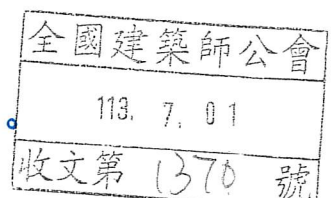 全國建築師公會
113. 7. 01
收文第 1370 號